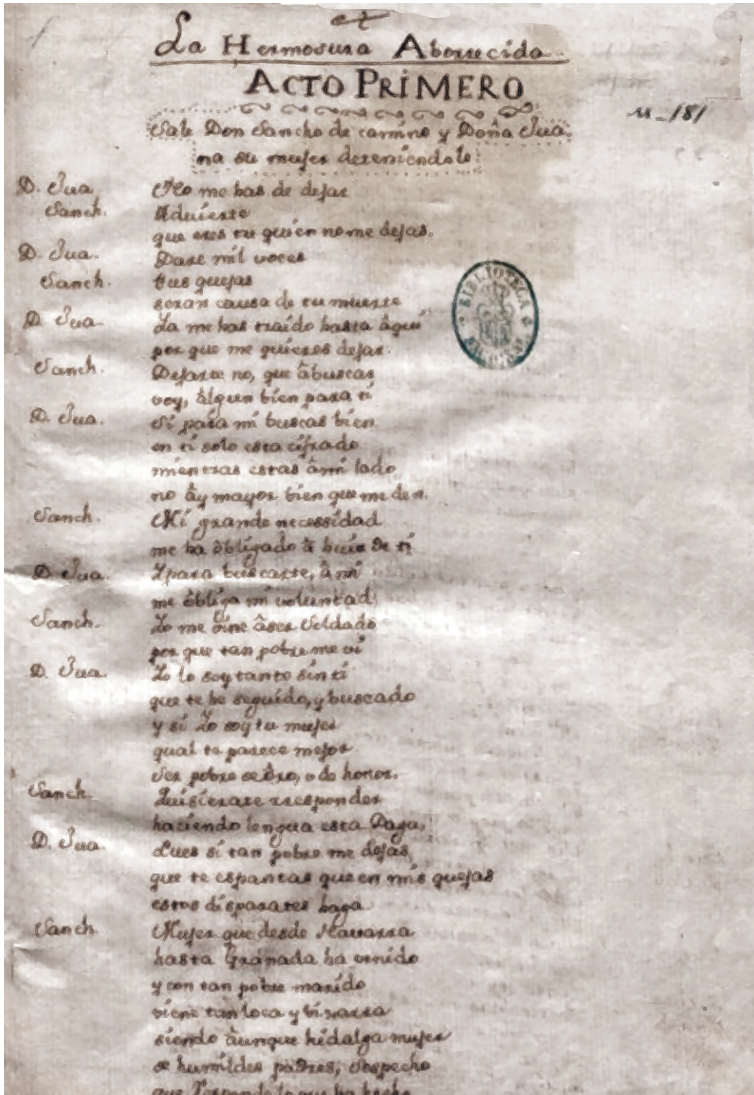 La Hermosura Aborrecida
ACTO PRIMERO
M-181
Sale Don Sancho de camino y Doña Jua
na su mujer deteniendole
D. Jua. No me has de dejar
Sanch. Advierte
que eres tu quien no me dejas.
D. Jua. Dare mil voces
Sanch. tus quejas
seran causa de tu muerte
D. Jua. Ya me has traido hasta aqui
por que me quieres dejar.
Sanch. Dejarte no, que â buscar
voy, âlgun bien para ti
D. Jua. Si para mi buscas bien
en ti solo esta cifrado
mientras estas â mi lado
no ây mayor bien que me den.
Sanch. Mi grande necessidad
me ha ôbligado â huir de ti
D. Jua. Y para buscarte, â mi
me ôbliga mi voluntad
Sanch. Yo me vine âser Soldado
por que tan pobre me vi
D. Jua. Yo lo soy tanto sin ti
que te he seguido, y buscado
y si Yo soy tu mujer
qual te parece mejor
ser pobre de Oro, o de honor.
Sanch. Quisierate rresponder
haciendo lengua esta Daga,
D. Jua. Pues si tan pobre me dejas,
que te espantas que en mis quejas
estos disparates haga
Sanch. Mujer que desde Navarra
hasta Granada ha venido
y con tan pobre marido
viene tan loca y bizarra
siendo âunque hidalga mujer
de humildes padres, sospecho
que
BIBLIOTECA